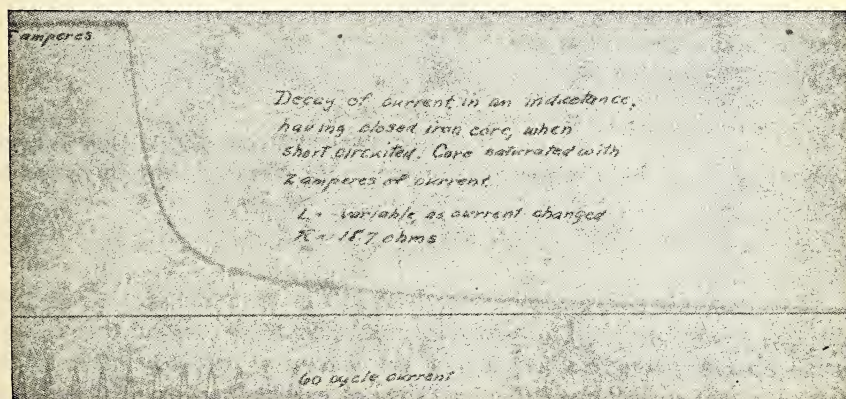 amperes
Decay of current in an inductance,
having closed iron core, when
short circuited. Core saturated with
2 amperes of current.
L = variable, as current changed
R = 18.7 ohms
60 cycle current